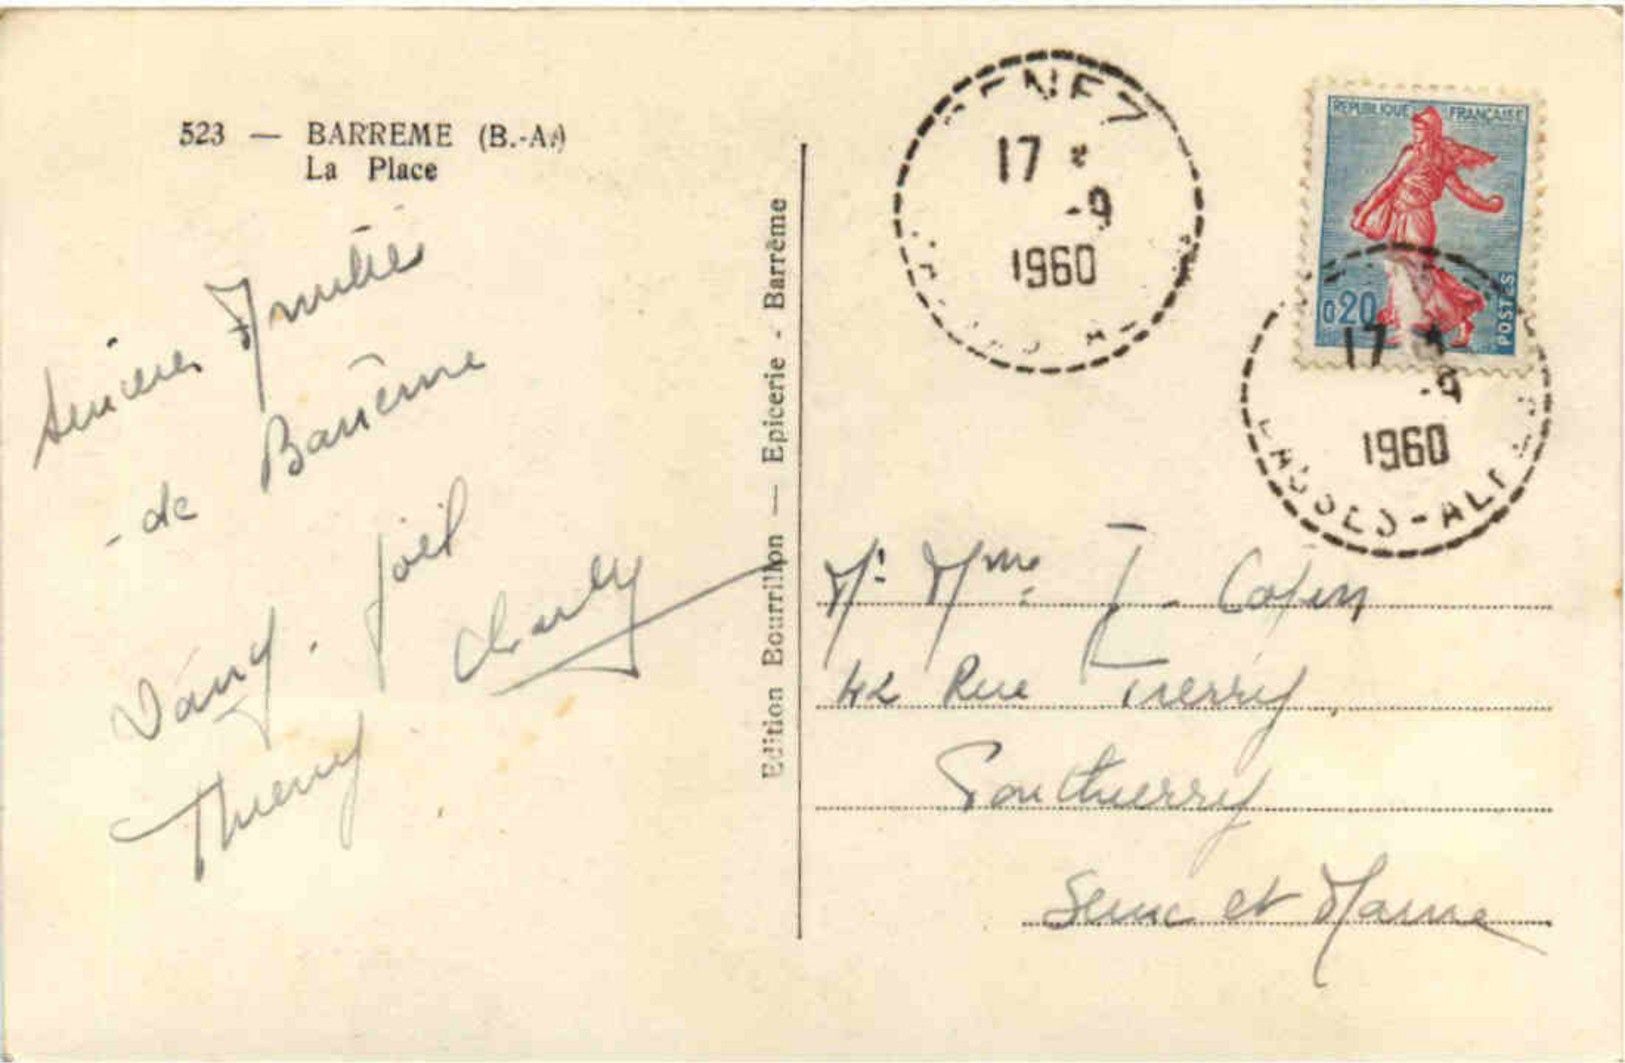 523 — BARREME (B.-A.)
La Place
Sincères Amitiés
- de Barrême
Dany. Joël
Charly
Thierry
Edition Bourrillon — Epicerie - Barrême
SENEZ
17 *
-9
1960
REPUBLIQUE FRANÇAISE
0,20
POSTES
17 *
-9
1960
BASSES-ALPES
Mr Mme J. Colin
42 Rue Thierry
Ponthierry
Seine et Marne